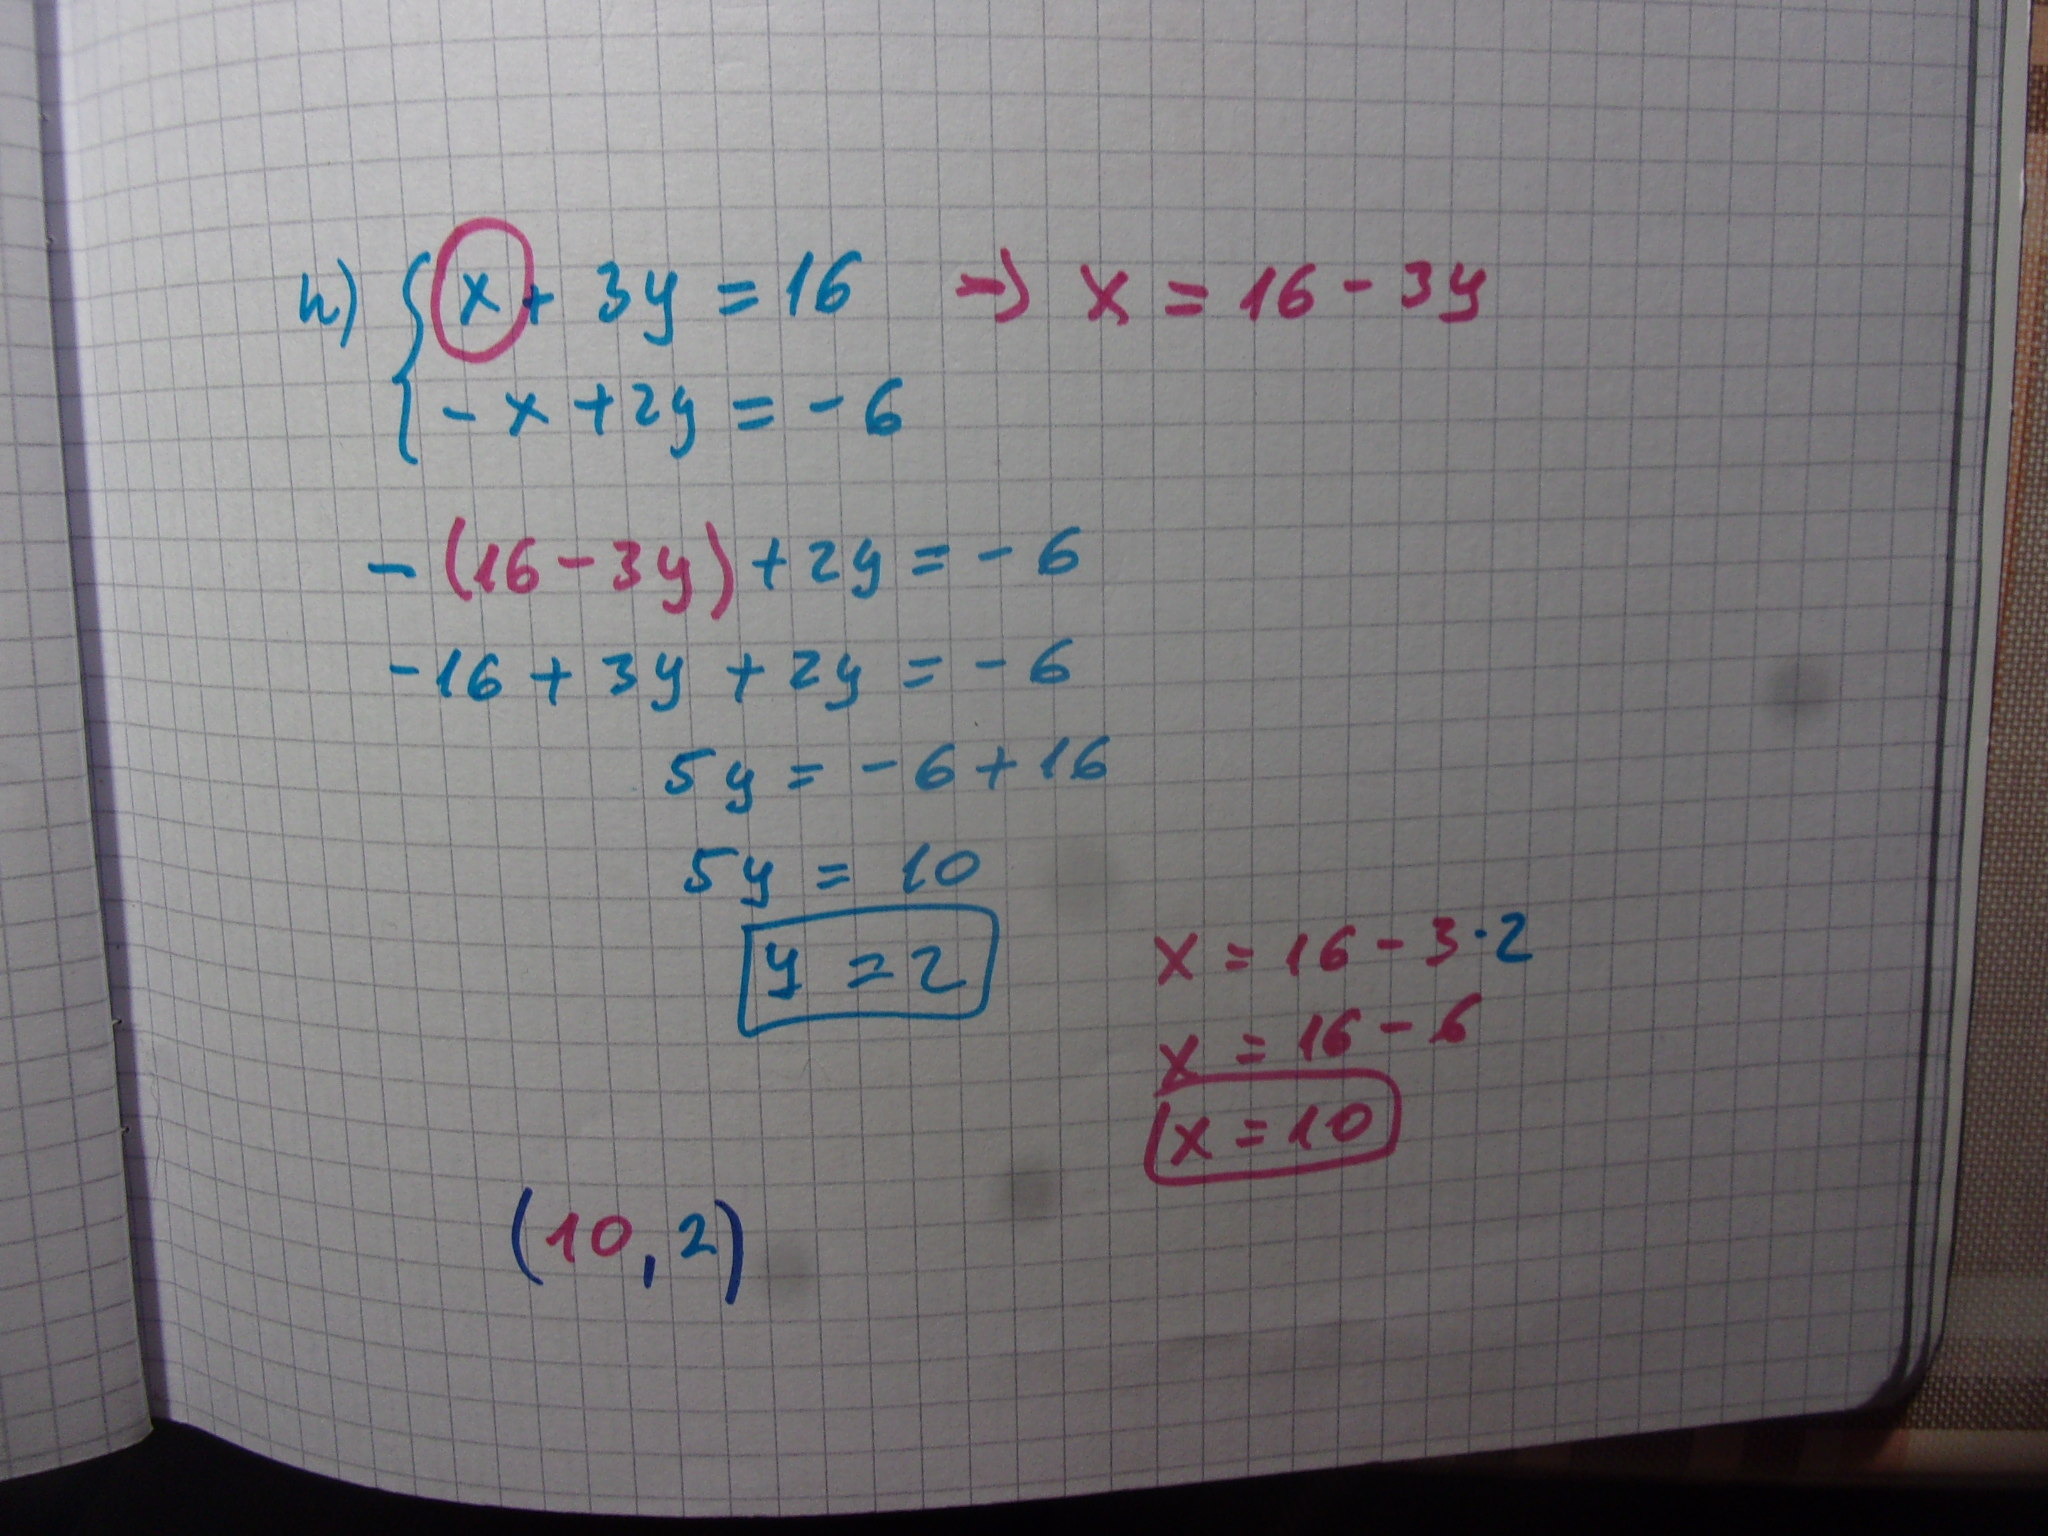 h) { x + 3y = 16 → x = 16 - 3y
- x + 2y = - 6
- (16 - 3y) + 2y = - 6
-16 + 3y + 2y = - 6
5y = - 6 + 16
5y = 10
y = 2
x = 16 - 3·2
x = 16 - 6
x = 10
(10, 2)